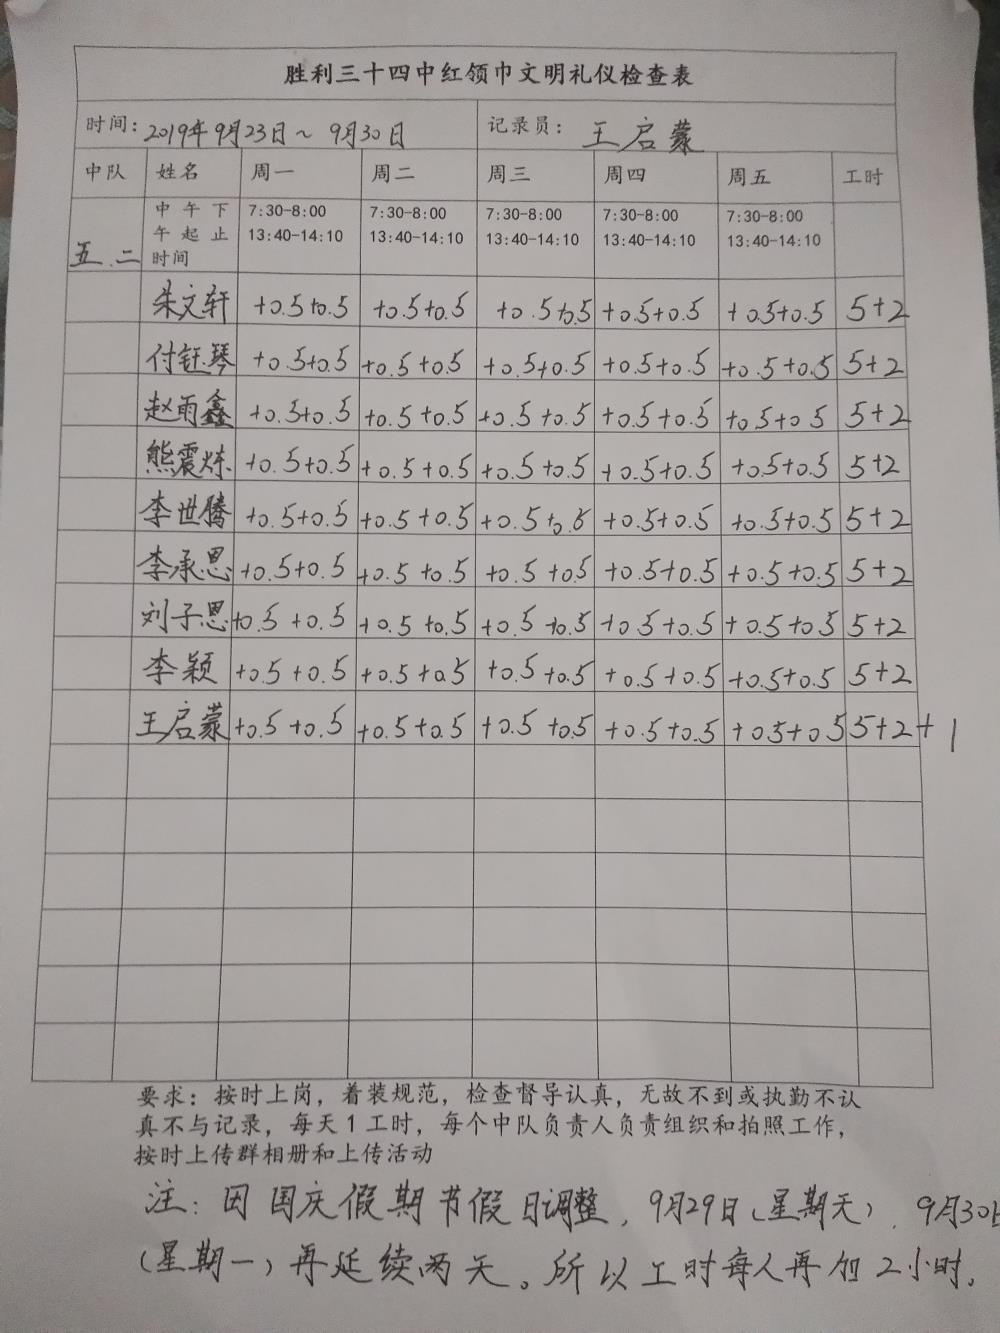 胜利三十四中红领巾文明礼仪检查表
时间: 2019年9月23日~ 9月30日 记录员: 王启蒙
中队 姓名 周一 周二 周三 周四 周五 工时
五.二 中午下午起止时间 7:30-8:00 13:40-14:10 7:30-8:00 13:40-14:10 7:30-8:00 13:40-14:10 7:30-8:00 13:40-14:10 7:30-8:00 13:40-14:10
朱文轩 +0.5+0.5 +0.5+0.5 +0.5+0.5 +0.5+0.5 +0.5+0.5 5+2
付钰琴 +0.5+0.5 +0.5+0.5 +0.5+0.5 +0.5+0.5 +0.5+0.5 5+2
赵雨鑫 +0.5+0.5 +0.5+0.5 +0.5+0.5 +0.5+0.5 +0.5+0.5 5+2
熊震炼 +0.5+0.5 +0.5+0.5 +0.5+0.5 +0.5+0.5 +0.5+0.5 5+2
李世腾 +0.5+0.5 +0.5+0.5 +0.5+0.5 +0.5+0.5 +0.5+0.5 5+2
李承恩 +0.5+0.5 +0.5+0.5 +0.5+0.5 +0.5+0.5 +0.5+0.5 5+2
刘子恩 +0.5+0.5 +0.5+0.5 +0.5+0.5 +0.5+0.5 +0.5+0.5 5+2
李颖 +0.5+0.5 +0.5+0.5 +0.5+0.5 +0.5+0.5 +0.5+0.5 5+2
王启蒙 +0.5+0.5 +0.5+0.5 +0.5+0.5 +0.5+0.5 +0.5+0.5 5+2+1
要求：按时上岗，着装规范，检查督导认真，无故不到或执勤不认
真不与记录，每天1工时，每个中队负责人负责组织和拍照工作，
按时上传群相册和上传活动
注: 因国庆假期节假日调整，9月29日（星期天）、9月30日
（星期一）再延续两天。所以工时每人再加2小时。